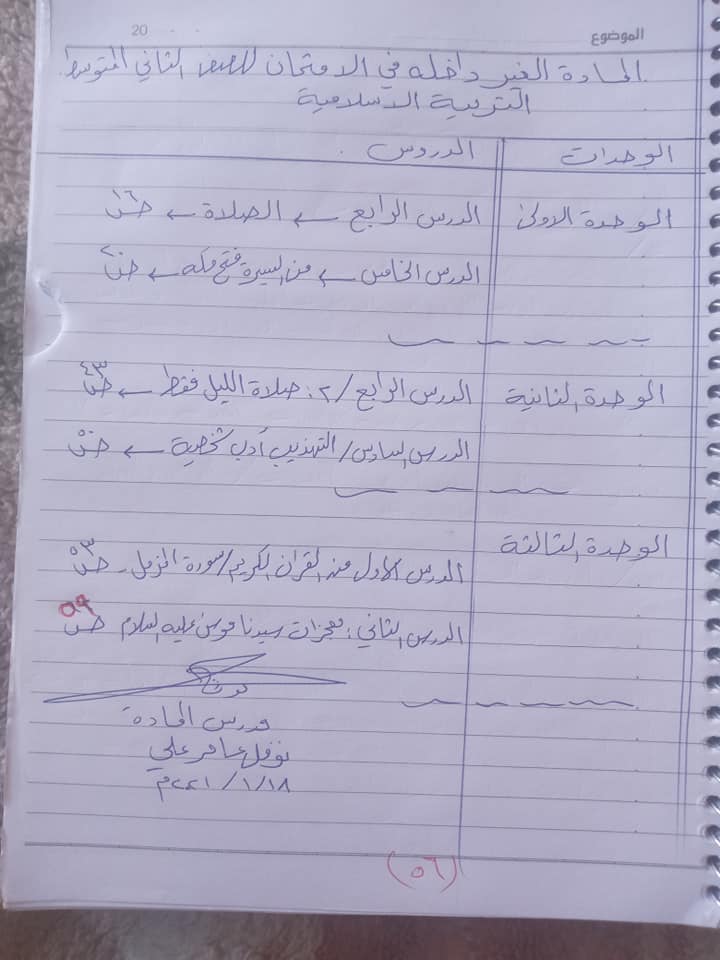 الموضوع 20
المادة الغير داخله في الامتحان للصف الثاني المتوسط.
التربية الاسلامية
الوحدات الدروس.
الوحدة الاولى الدرس الرابع ← الصلاة ← ص١٦
الدرس الخامس ← من السيرة فتح مكه ← ص٢٠
الوحدة الثانية الدرس الرابع /٢: صلاة الليل فقط ← ص٤٣
الدرس السادس/ التهذيب أدب شخصية ← ص٥٠
الوحدة الثالثة الدرس الاول من القران الكريم/سورة المزمل. ص٥٣
الدرس الثاني: معجزات سيدنا موسى عليه السلام ص٥٩
مدرس المادة
نوفل عامر علي
٢٠٢١/١/١٨م
(٥٦)